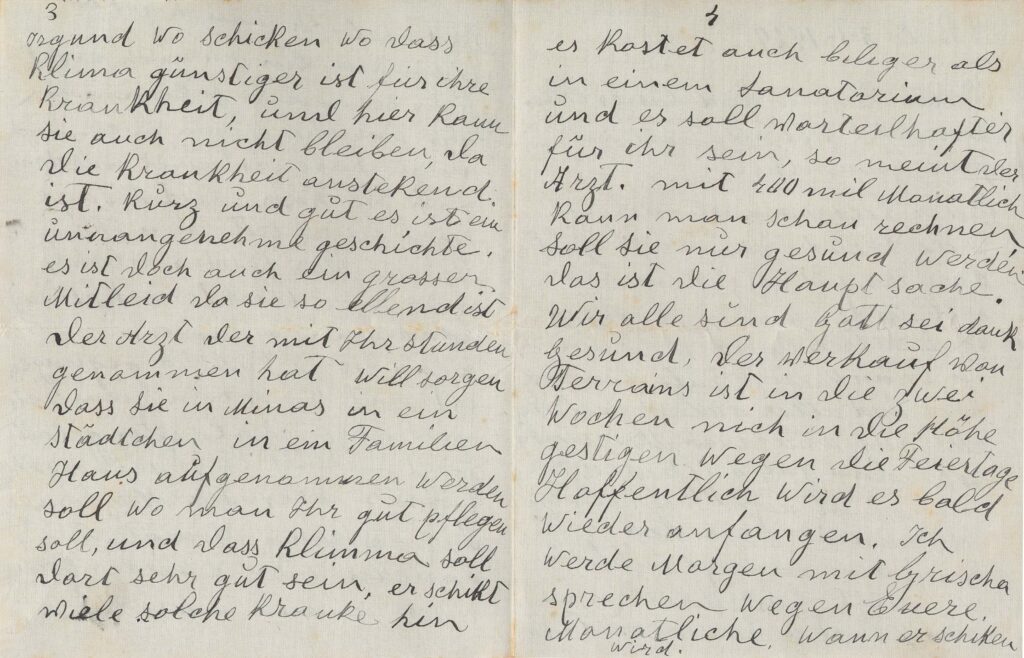 3
irgund wo schicken wo dass
Klima günstiger ist für ihre
Krankheit, und hier Kann
sie auch nicht bleiben, da
die Krankheit anstekend.
ist. Kurz und gut es ist ein
unnangenehme geschichte.
es ist doch auch ein grosser
Mitleid da sie so ellend ist
der Arzt der mit Ihr stunden
genommen hat will sorgen
dass sie in Minas in ein
städtchen in ein Familien
Haus aufgenommen werden
soll wo man Ihr gut pflegen
soll, und dass Klimma soll
dort sehr gut sein, er schikt
wiele solche Kranke hin
4
es Kostet auch biliger als
in einem Sanatorium
und es soll worteilhafter
für ihr sein, so meint der
Arzt. mit 400 mil Monatlich
Kann man schon rechnen
soll sie nur gesund werden
das ist die Haupt sache.
Wir alle sind Gott sei dank
Gesund, der werkauf won
Terrains ist in die zwei
Wochen nich in die Höhe
gestigen wegen die Feiertage
Hoffentlich wird es bald
wieder anfangen. Ich
werde Morgen mit Grischa
sprechen wegen Euere.
Monatliche, wann er schiken
wird.